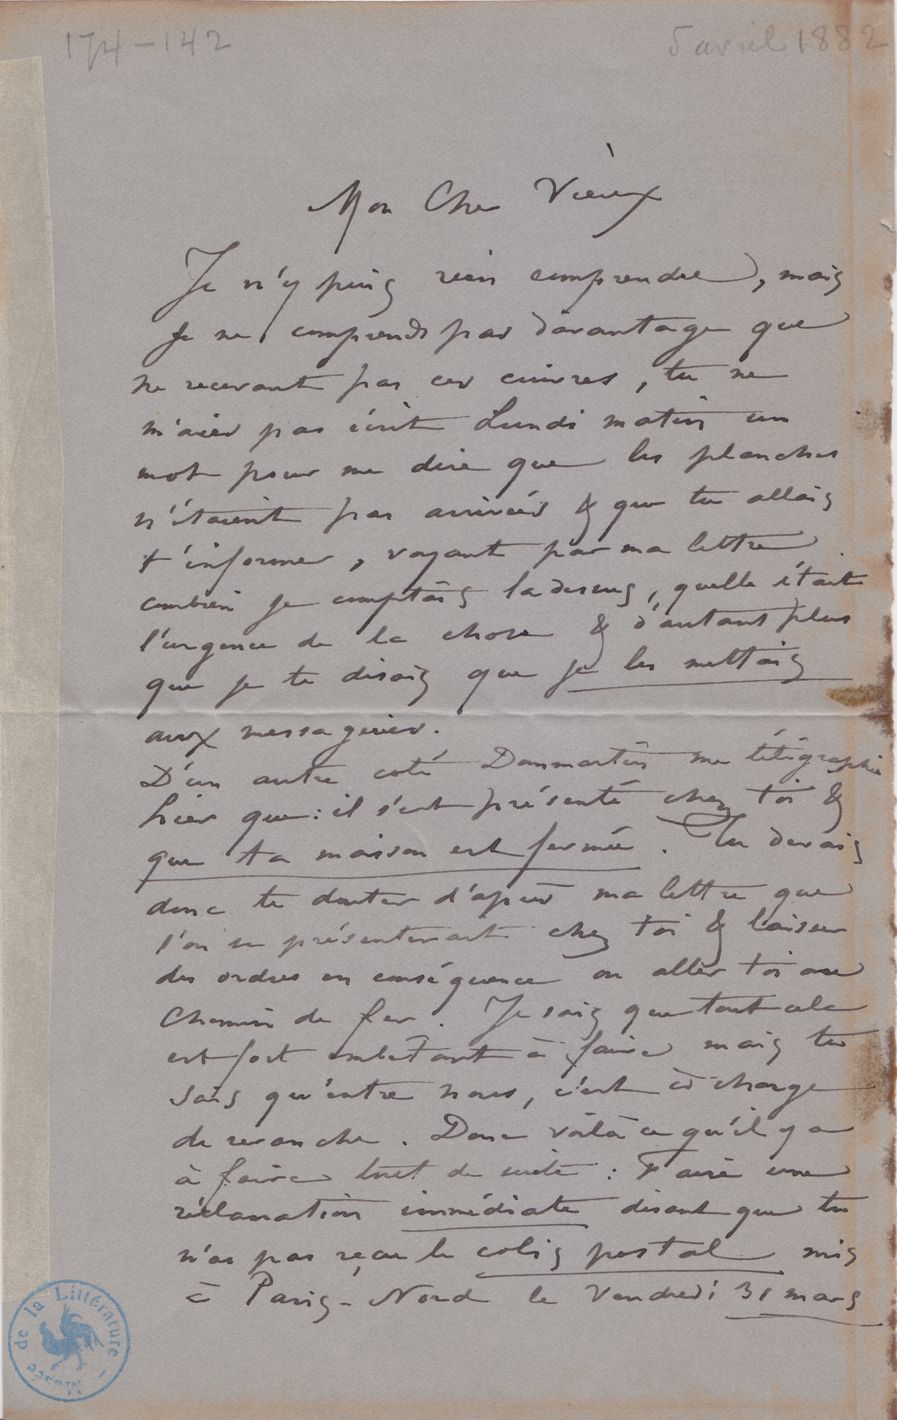 174-142
5 avril 1882
Mon Cher Vieux
Je n'y puis rien comprendre, mais
je ne comprends pas davantage que
ne recevant pas ces cuivres, tu ne
m'aies pas écrit Lundi matin un
mot pour me dire que les planches
n'étaient pas arrivées & que tu allais
t'informer, voyant par ma lettre
combien je comptais la dessus, quelle était
l'urgence de la chose & d'autant plus
que je te disais que je les mettais
aux messageries.
D'un autre coté Dommartin me télégraphie
hier que : il s'est présenté chez toi &
que ta maison est fermée. Tu devais
donc te douter d'après ma lettre que
l'on se présenterait chez toi & laisser
des ordres en conséquence ou aller toi au
Chemin de fer. Je sais que tout cela
est fort embetant à faire mais tu
sais qu'entre nous, c'est à charge
de revanche. Donc voilà ce qu'il y a
à faire tout de suite : Faire une
réclamation immédiate disant que tu
n'as pas reçu le colis postal mis
à Paris-Nord le Vendredi 31 mars
de la Littérature
Musée